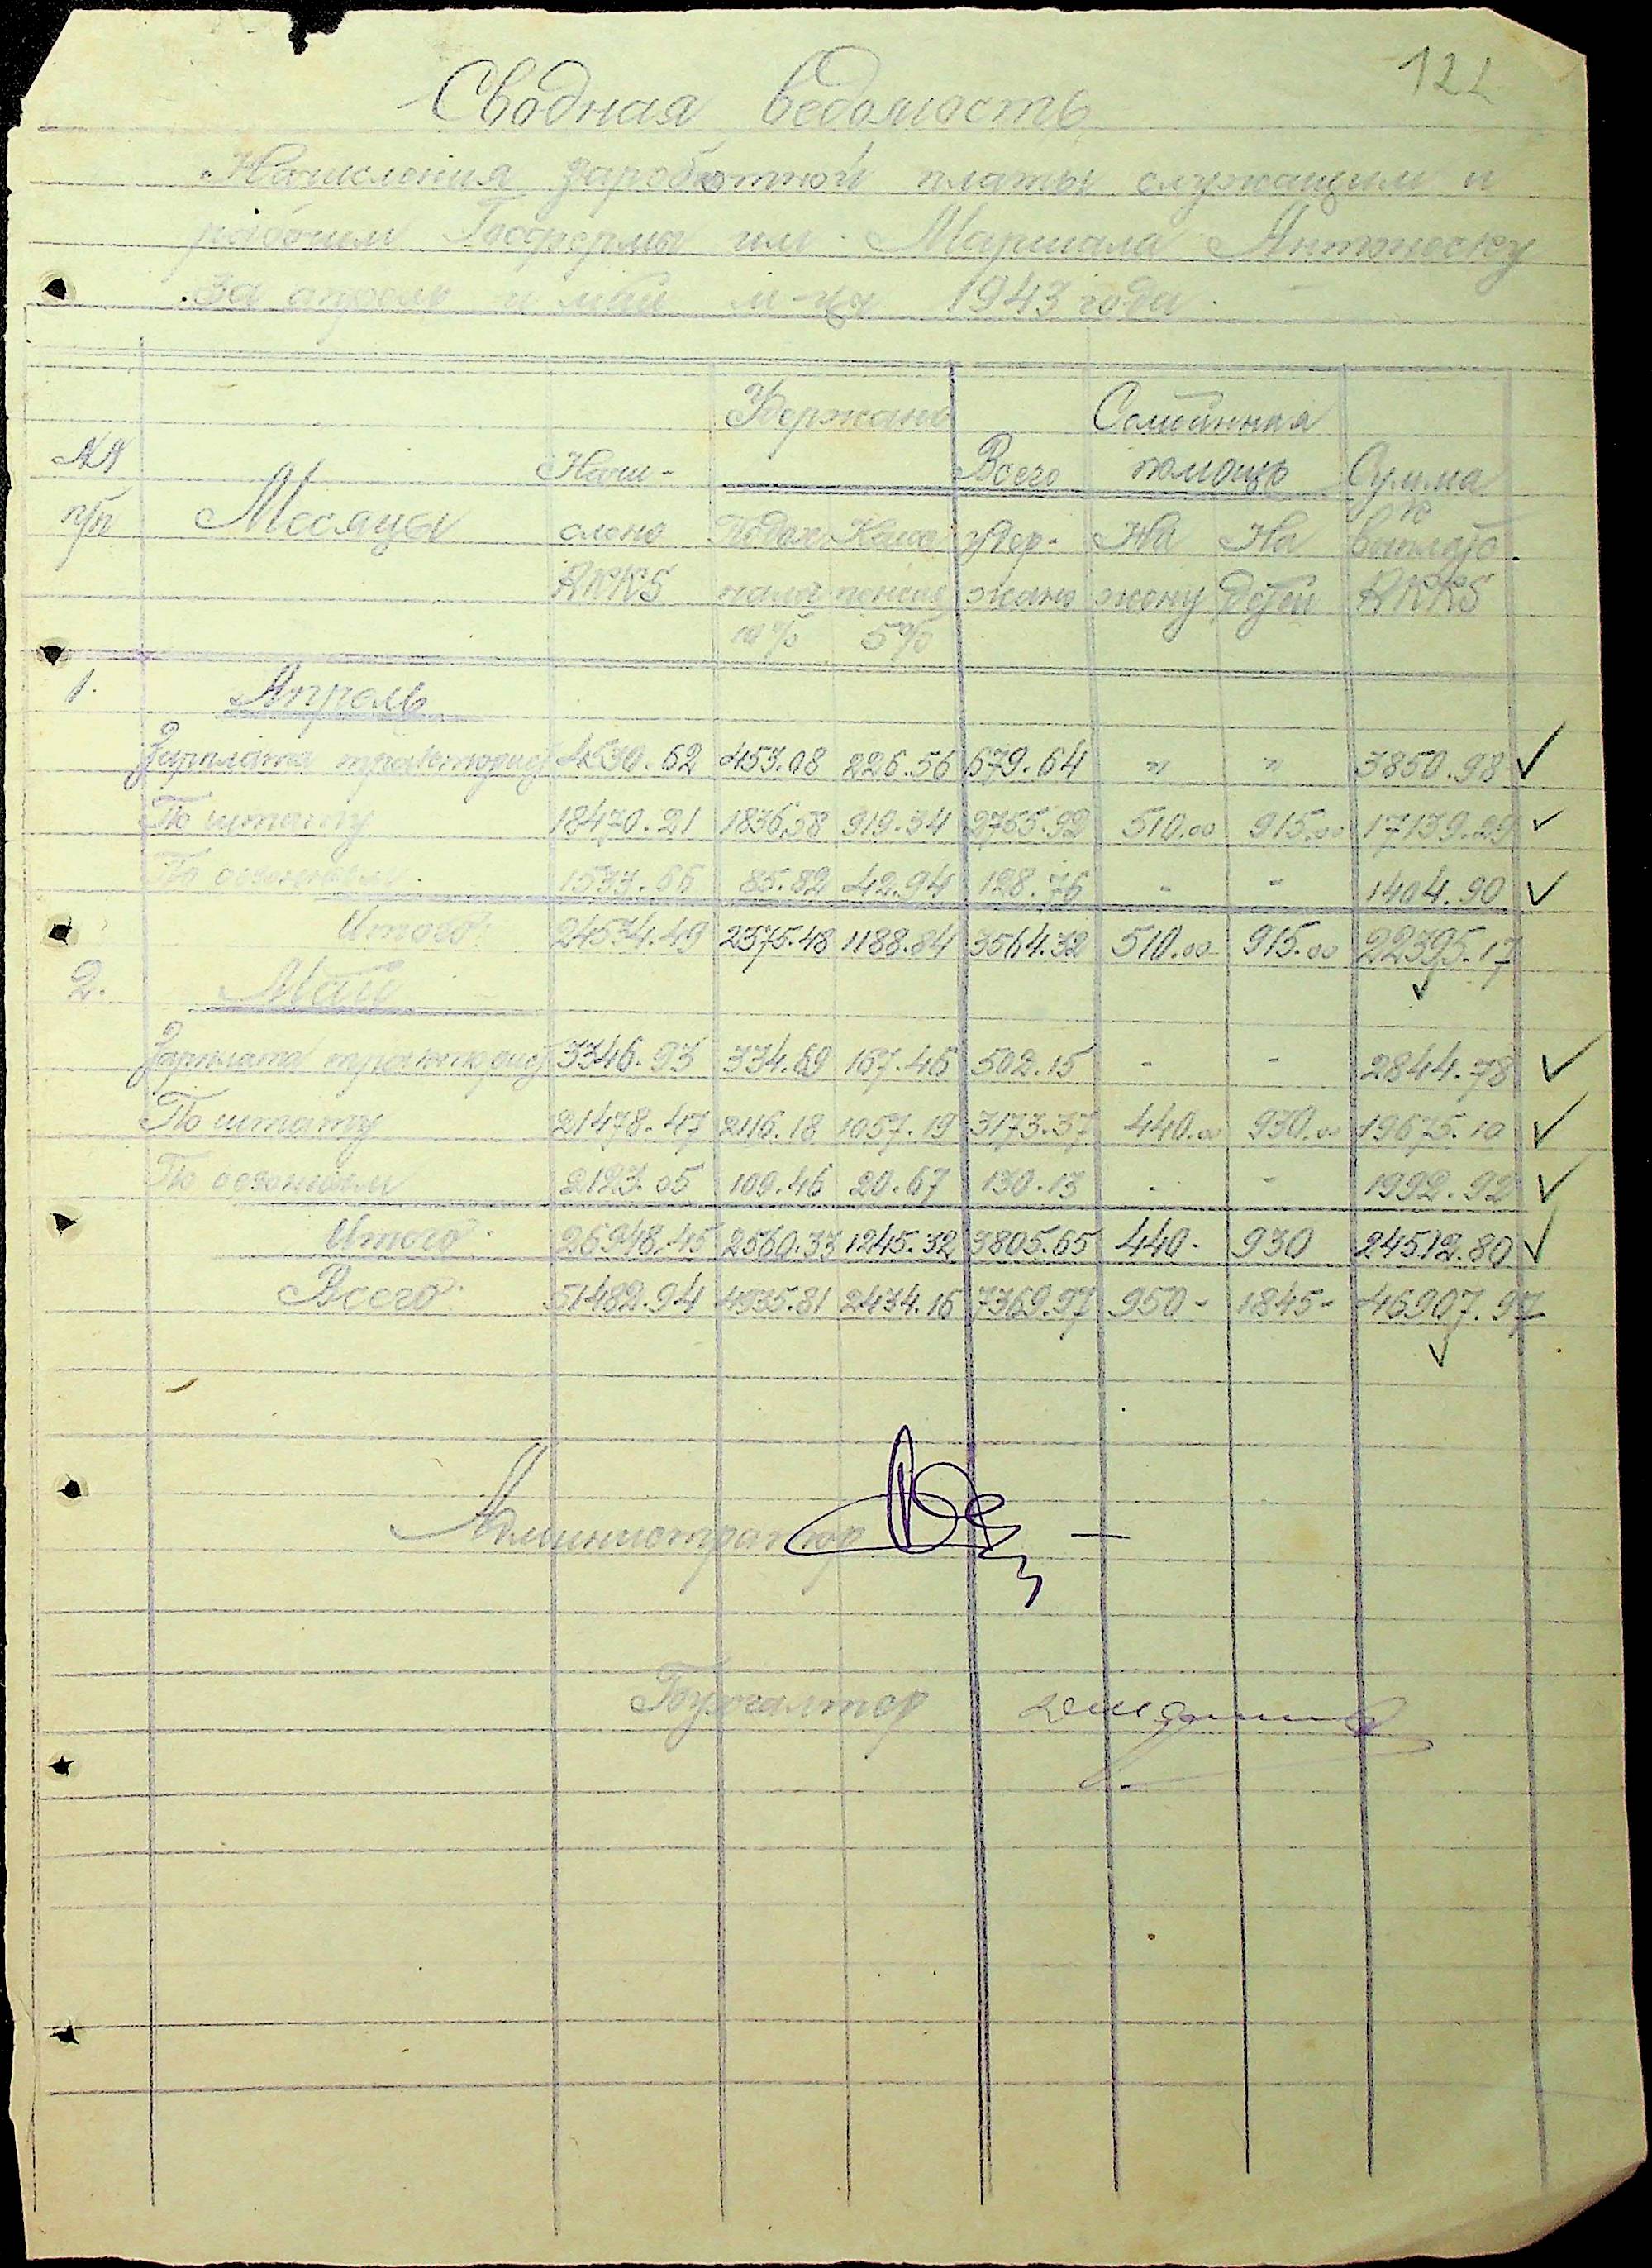 122
Сводная ведомость
Начисления заработной платы служащим и
рабочим Госфермы им. Маршала Антонеску
за апрель и май м-цы 1943 года.
Удержано Семейная
№№ Начи- Всего помощь Сумма
п/п Месяцы слено Подох. Касса удер- На На к выплате
RKKS налог пенсии жано жену детей RKKS
10% 5%
1. Апрель
Зарплата трактористу 4530.62 453.08 226.56 679.64 " " 3850.98
По штату 18470.21 1836.58 919.34 2755.92 510.00 915.00 17139.29
По сезонным 1533.66 85.82 42.94 128.76 - - 1404.90
Итого: 24534.49 2375.48 1188.84 3564.32 510.00 915.00 22395.17
2. Май
Зарплата трактористу 3346.93 334.69 167.46 502.15 - - 2844.78
По штату 21478.47 2116.18 1057.19 3173.37 440.00 930.00 19675.10
По сезонным 2123.05 109.46 20.67 130.13 - - 1992.92
Итого: 26948.45 2560.33 1245.32 3805.65 440- 930 24512.80
Всего: 51482.94 4935.81 2434.16 7369.97 950- 1845- 46907.97
Администратор
Бухгалтер